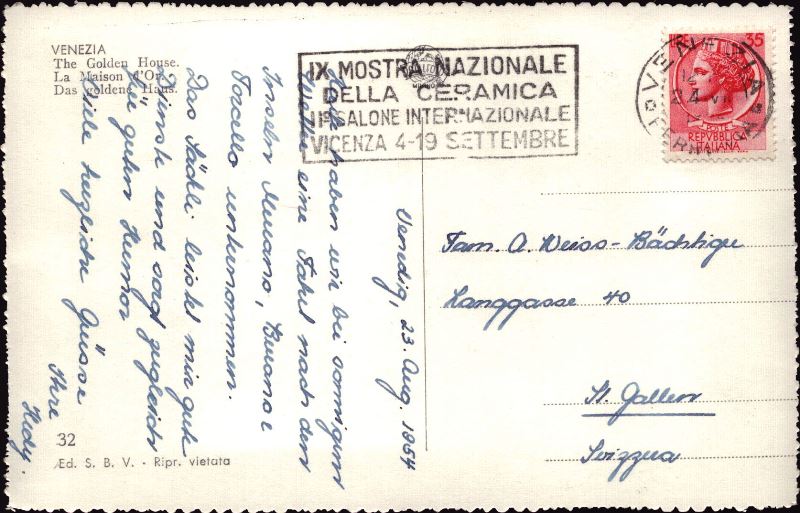 VENEZIA
The Golden House.
La Maison d'Or.
Das goldene Haus.
IX MOSTRA NAZIONALE
DELLA CERAMICA
IIº SALONE INTERNAZIONALE
VICENZA 4-19 SETTEMBRE
VENEZIA
FERR
12
24 VI
35
POSTE
REPVBBLICA
ITALIANA
Venedig, 23. Aug. 1954
haben wir bei sonnigem
eine Fahrt nach den
Inseln Murano, Burano &
Torcello unternommen.
Das Säckli leistet mir gute
Dienste und sagt zugleich
für guten Humor
Liebe herzliche Grüsse
Ihre
Hedy.
Fam. A. Weiss-Bächtiger
Langgasse 40
St. Gallen
Svizzera
32
Æd. S. B. V. - Ripr. vietata